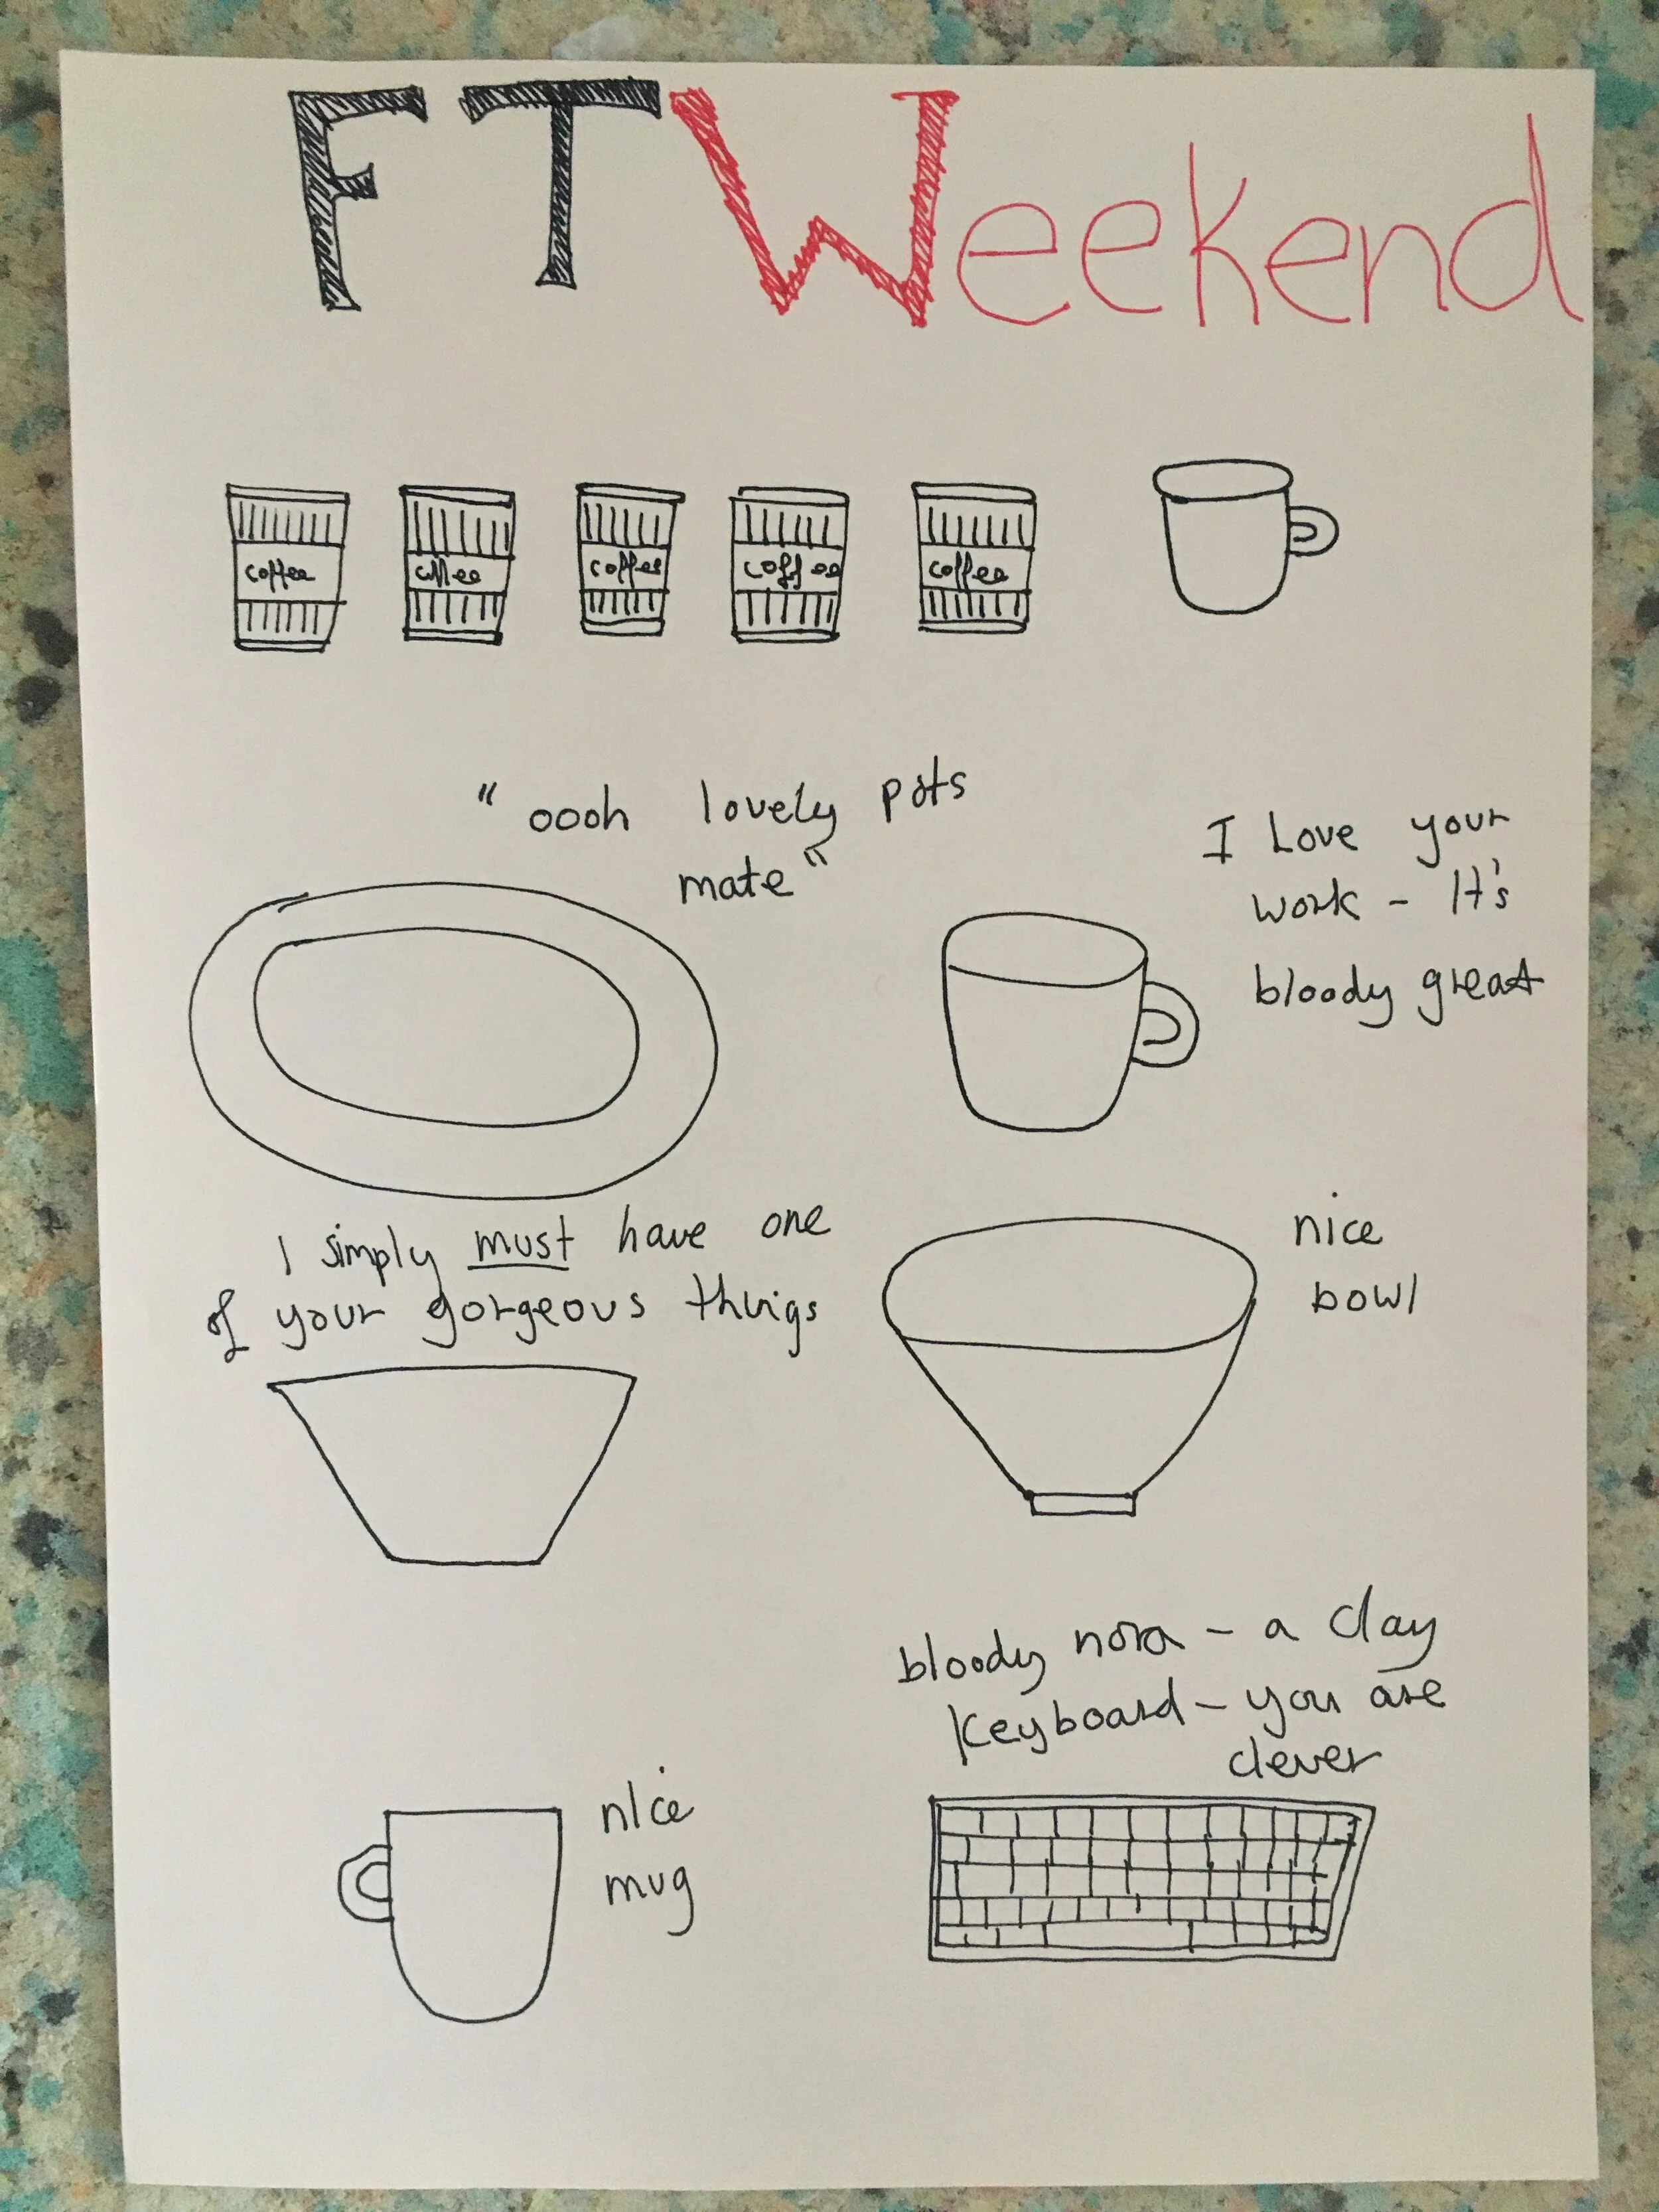 FTWeekend
coffee coffee coffee coffee coffee
"oooh lovely pots
mate"
I Love your
work - It's
bloody great
I simply must have one
of your gorgeous things
nice
bowl
bloody nora - a clay
keyboard - you are
clever
nice
mug